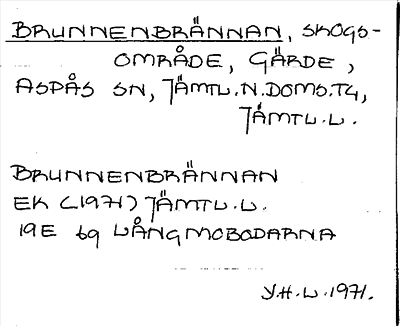 BRUNNENBRÄNNAN, SKOGS-
OMRÅDE, GÄRDE,
ASPÅS SN, JÄMTL.N.DOMS.TG,
JÄMTL.L.
BRUNNENBRÄNNAN
EK (1971) JÄMTL.L.
19E 6g LÅNGMOBODARNA
Y.H.L.1971.